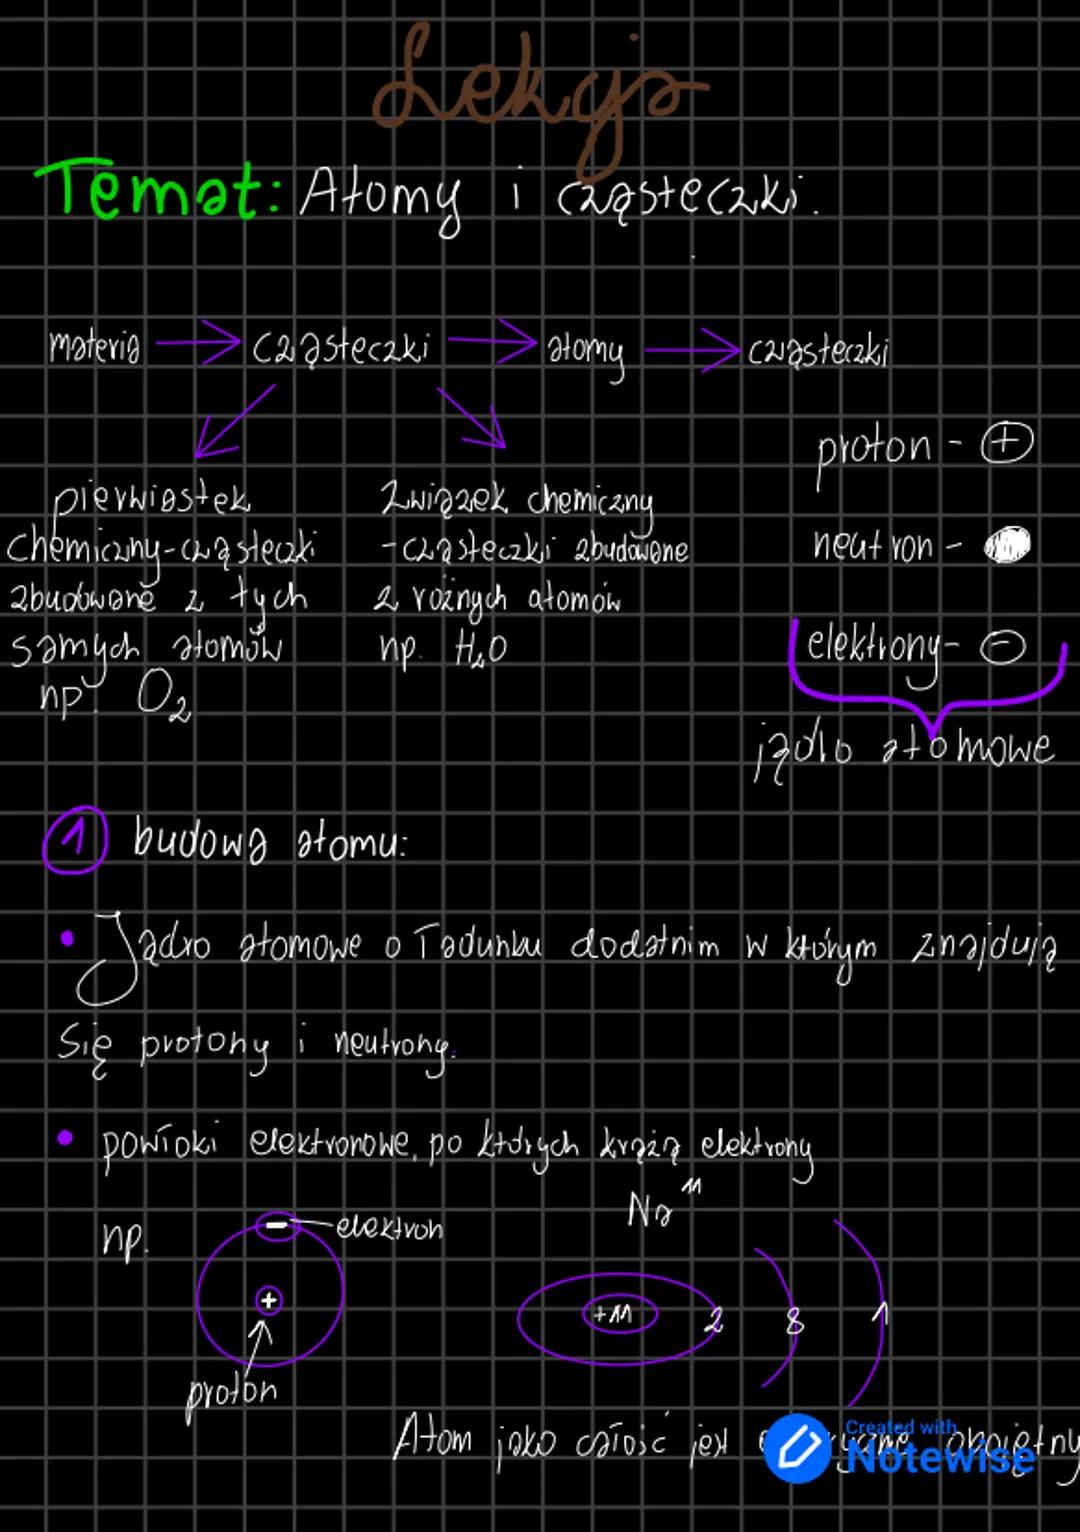 Lekcja
Temat: Atomy i cząsteczki.
materia → cząsteczki → atomy → cząsteczki
proton - +
neutron -
elektrony - -
jądro atomowe
pierwiastek
chemiczny - cząsteczki
zbudowane z tych
samych atomów
np. O2
Związek chemiczny
- cząsteczki zbudowane
z różnych atomów
np. H2O
1 budowa atomu:
• Jądro atomowe o ładunku dodatnim w którym znajdują
się protony i neutrony.
• powłoki elektronowe, po których krążą elektrony
np.
- elektron
+
proton
Na 11
+11 2 8 1
Atom jako całość jest obojętny
Created with
Notewise